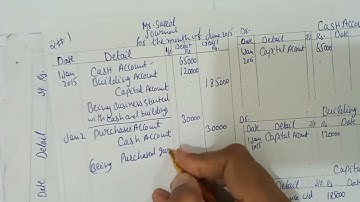 2#1
Mr. Saeed
Journal
for the month of June 2015
Date Detail J/R Debit Rs Credit Rs
1 Jan 2015 Cash Account 65000
Building Account 120000
Capital Account 185000
Being business started
with cash and building
Jan 2 Purchases Account 30000
Cash Account 30000
Being Purchased
Cash Account
Dr.
Date Detail J.R Rs.
1 Jan 2015 Capital Account 65000
Dr.
Date Detail
1 Jan 2015 Capital Account 120000
c/d 185000
Date Detail J.R Rs.
Date Detail